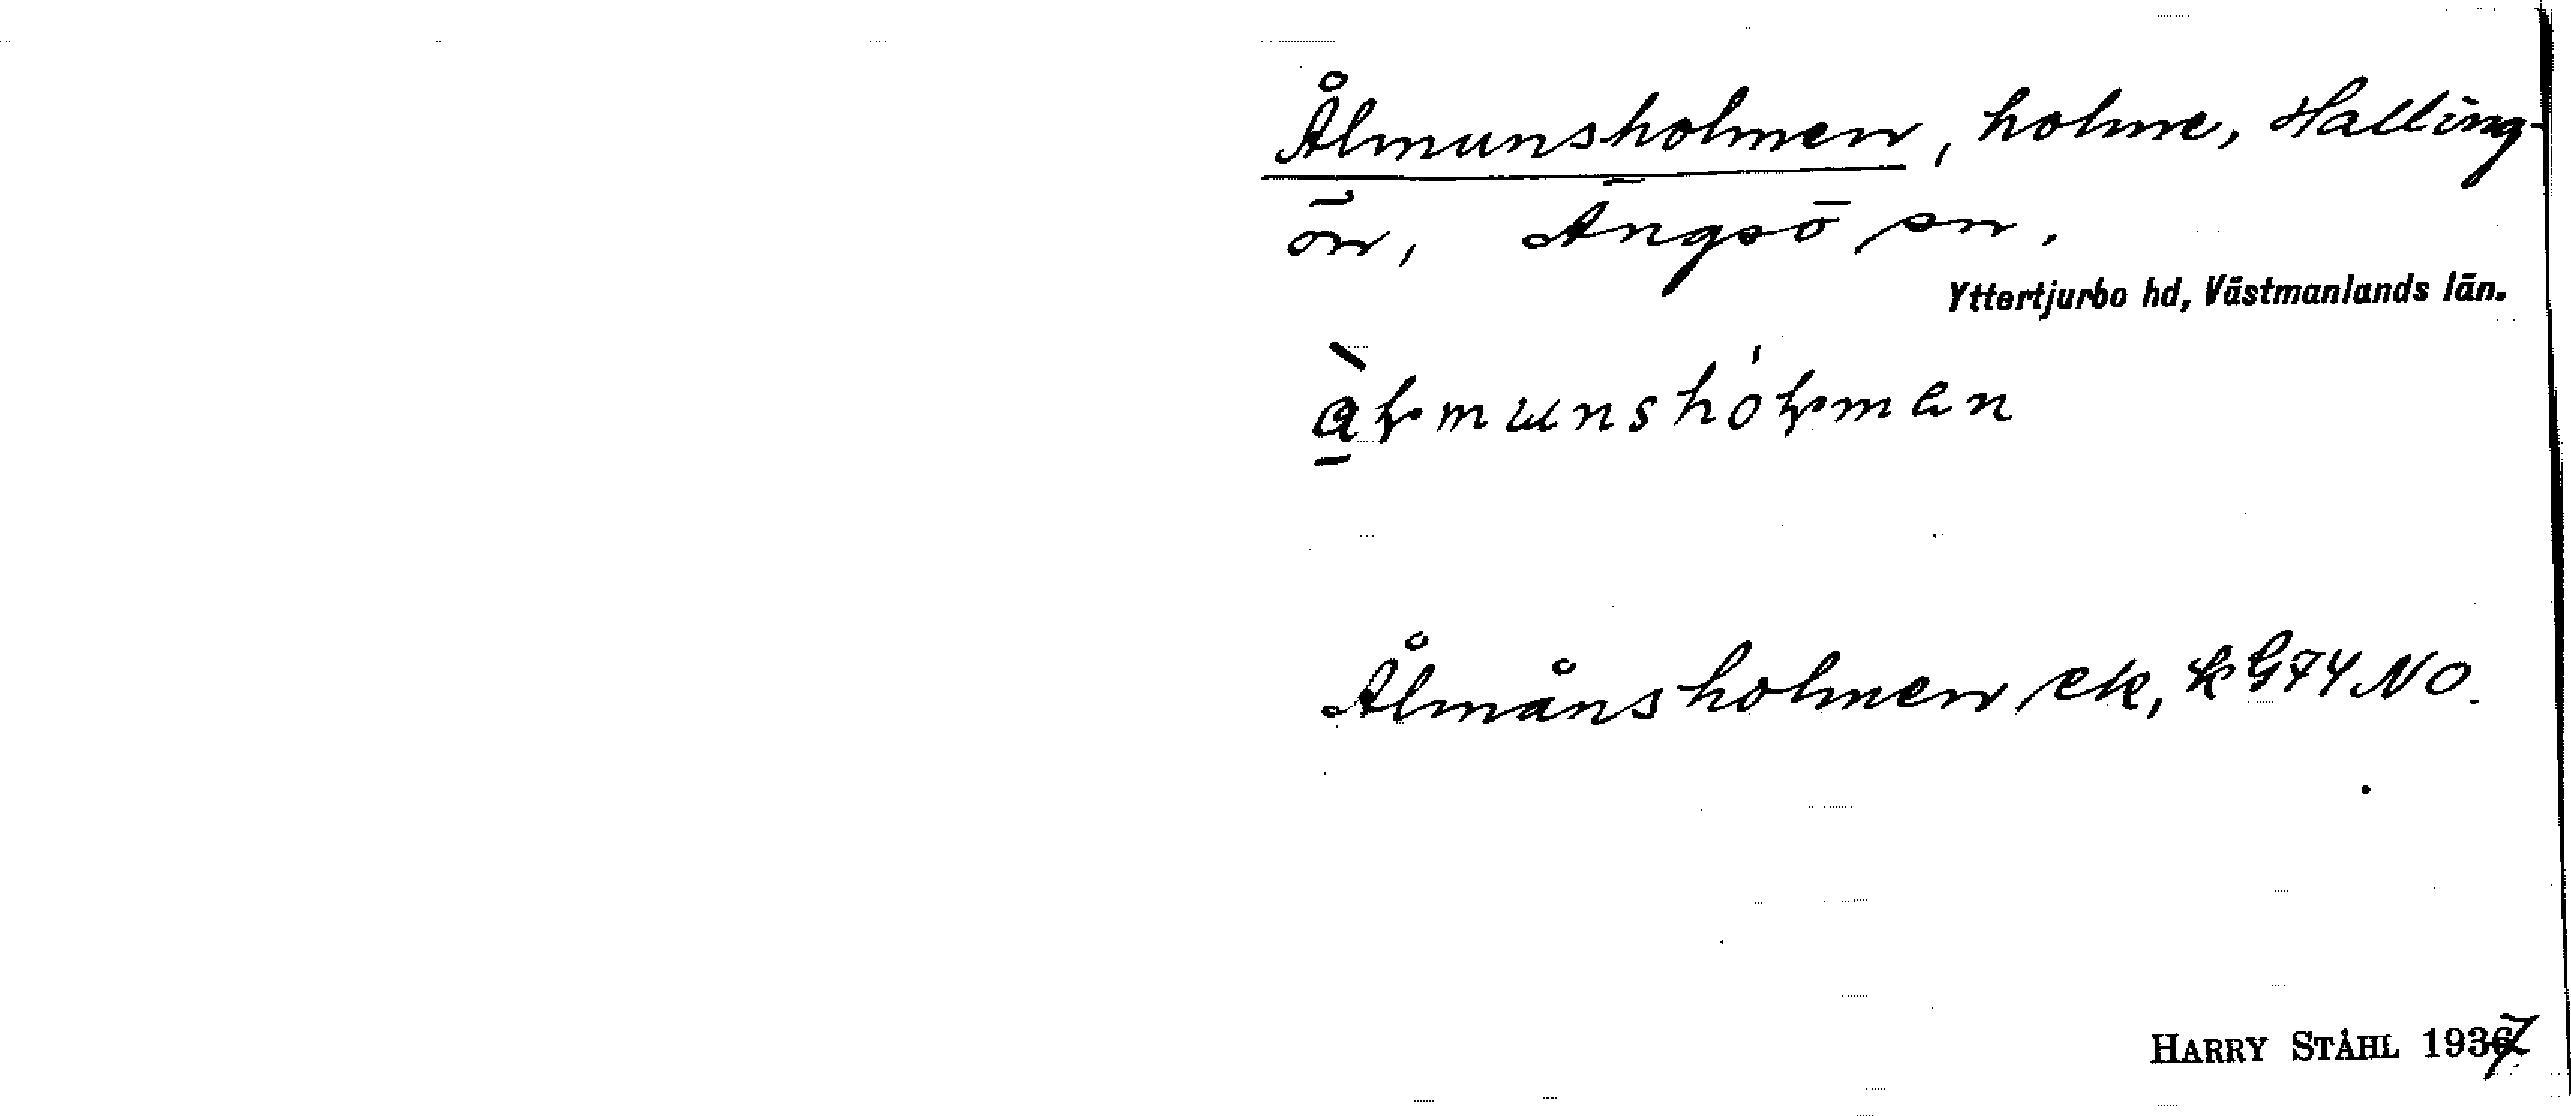 Ålmunsholmen, holme, Halling-
ön, Ängsö sn.
Yttertjurbo hd, Västmanlands län.
Ålmånsholmen ek, k G74 NO.
HARRY STÅHL 1937